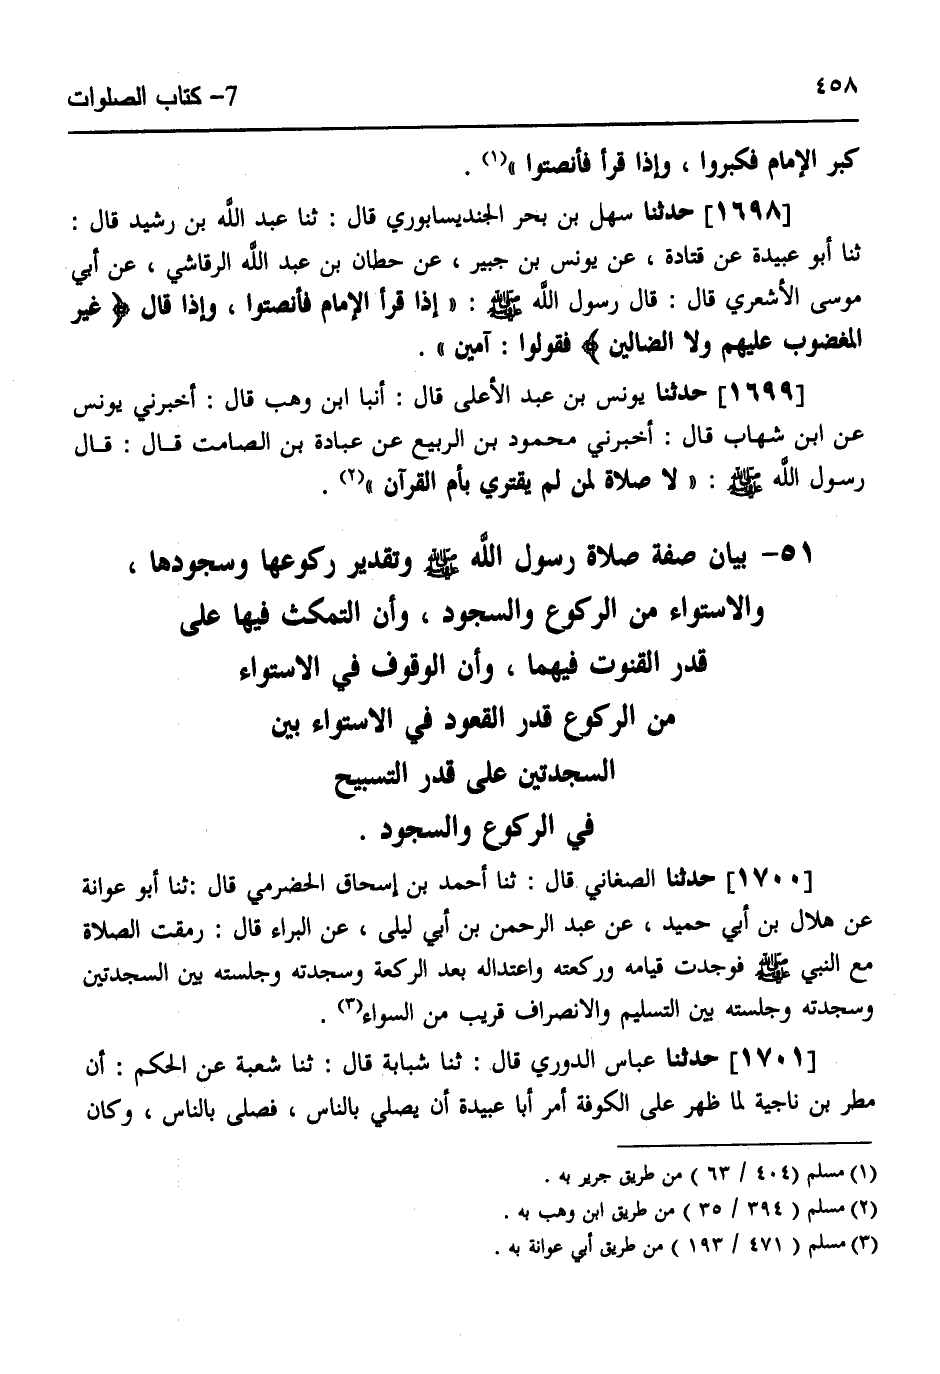 ٤٥٨
7- كتاب الصلوات
كبر الإمام فكبروا ، وإذا قرأ فأنصتوا »(١) .
[١٦٩٨] حدثنا سهل بن بحر الجنديسابوري قال : ثنا عبد اللَّه بن رشيد قال :
ثنا أبو عبيدة عن قتادة ، عن يونس بن جبير ، عن حطان بن عبد اللَّه الرقاشي ، عن أبي
موسى الأشعري قال : قال رسول اللَّه ﷺ : « إذا قرأ الإمام فأنصتوا ، وإذا قال ﴿ غير
المغضوب عليهم ولا الضالين ﴾ فقولوا : آمين » .
[١٦٩٩] حدثنا يونس بن عبد الأعلى قال : أنبا ابن وهب قال : أخبرني يونس
عن ابن شهاب قال : أخبرني محمود بن الربيع عن عبادة بن الصامت قـال : قـال
رسول اللَّه ﷺ : « لا صلاة لمن لم يقتري بأم القرآن »(٢) .
٥١- بيان صفة صلاة رسول اللَّه ﷺ وتقدير ركوعها وسجودها ،
والاستواء من الركوع والسجود ، وأن التمكث فيها على
قدر القنوت فيهما ، وأن الوقوف في الاستواء
من الركوع قدر القعود في الاستواء بين
السجدتين على قدر التسبيح
في الركوع والسجود .
[١٧٠٠] حدثنا الصغاني قال : ثنا أحمد بن إسحاق الحضرمي قال :ثنا أبو عوانة
عن هلال بن أبي حميد ، عن عبد الرحمن بن أبي ليلى ، عن البراء قال : رمقت الصلاة
مع النبي ﷺ فوجدت قيامه وركعته واعتداله بعد الركعة وسجدته وجلسته بين السجدتين
وسجدته وجلسته بين التسليم والانصراف قريب من السواء(٣) .
[١٧٠١] حدثنا عباس الدوري قال : ثنا شبابة قال : ثنا شعبة عن الحكم : أن
مطر بن ناجية لما ظهر على الكوفة أمر أبا عبيدة أن يصلي بالناس ، فصلى بالناس ، وكان
(١) مسلم (٤٠٤ / ٦٣ ) من طريق جرير به .
(٢) مسلم ( ٣٩٤ / ٣٥ ) من طريق ابن وهب به .
(٣) مسلم ( ٤٧١ / ١٩٣ ) من طريق أبي عوانة به .